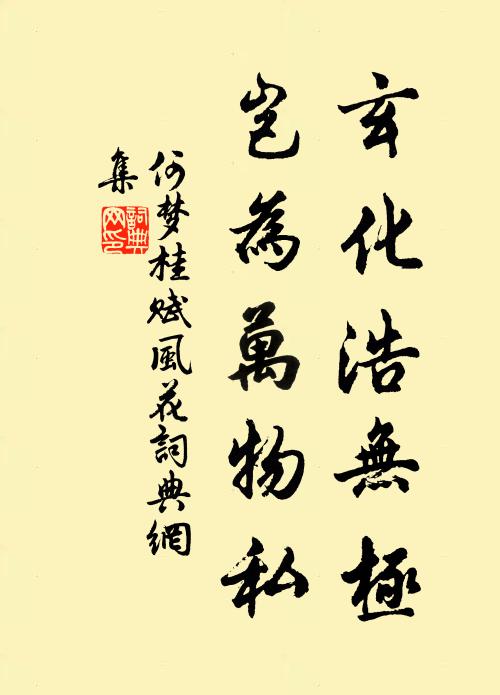 玄化浩無極
豈為萬物私
何梦桂赋風花詞典網
集
詞典
网印